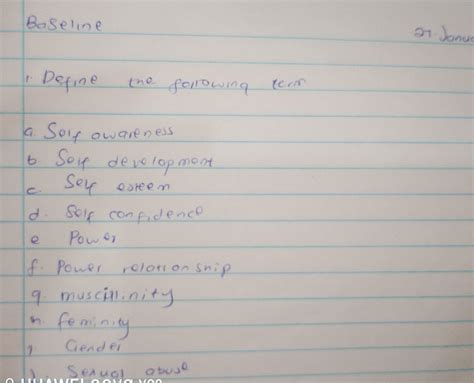 Baseline
21 Janua
1. Define the following term
a. Self awareness
b. Self development
c. Self esteem
d. Self confidence
e Power
f. Power relationship
g. muscillinity
h. feminity
i Gender
j Sexual abuse